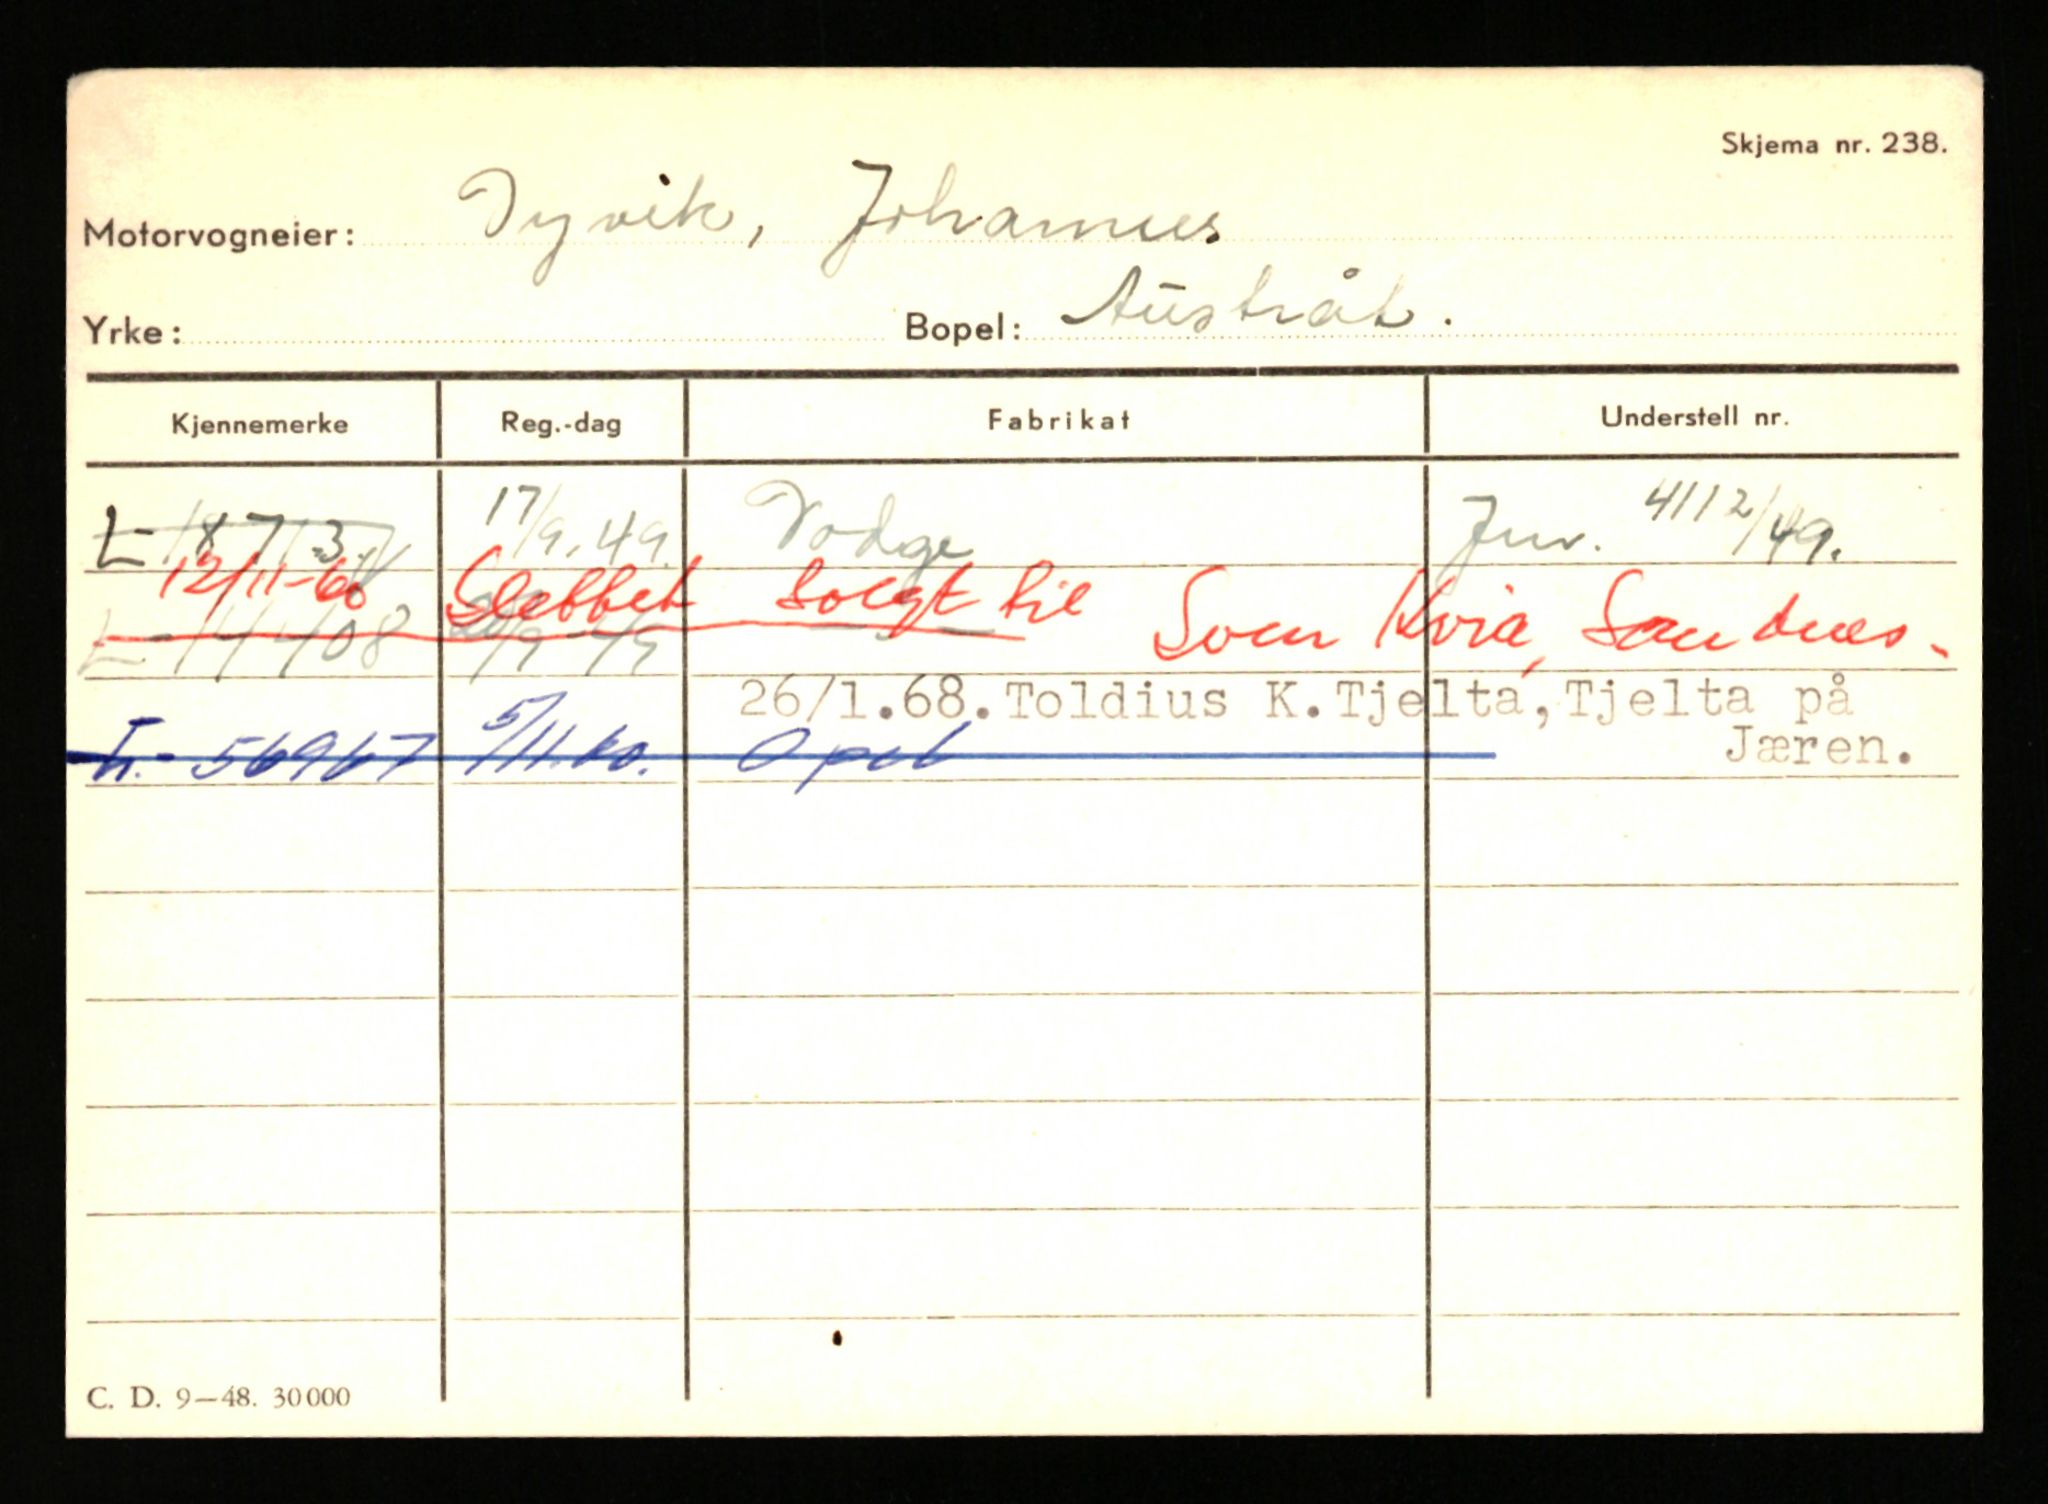 Skjema nr. 238.
Motorvogneier: Dyvik, Johannes
Yrke: Bopel: Austråt.
Kjennemerke Reg.-dag Fabrikat Understell nr.
17/9.49. Dodge Jnr. 4112/49.
12/11-60 Slettet Solgt til Sven Kvia, Sandnes.
L-14408
26/1.68. Toldius K. Tjelta, Tjelta på
Jæren.
L.-56967 5/11.60. Opel
C. D. 9—48. 30000